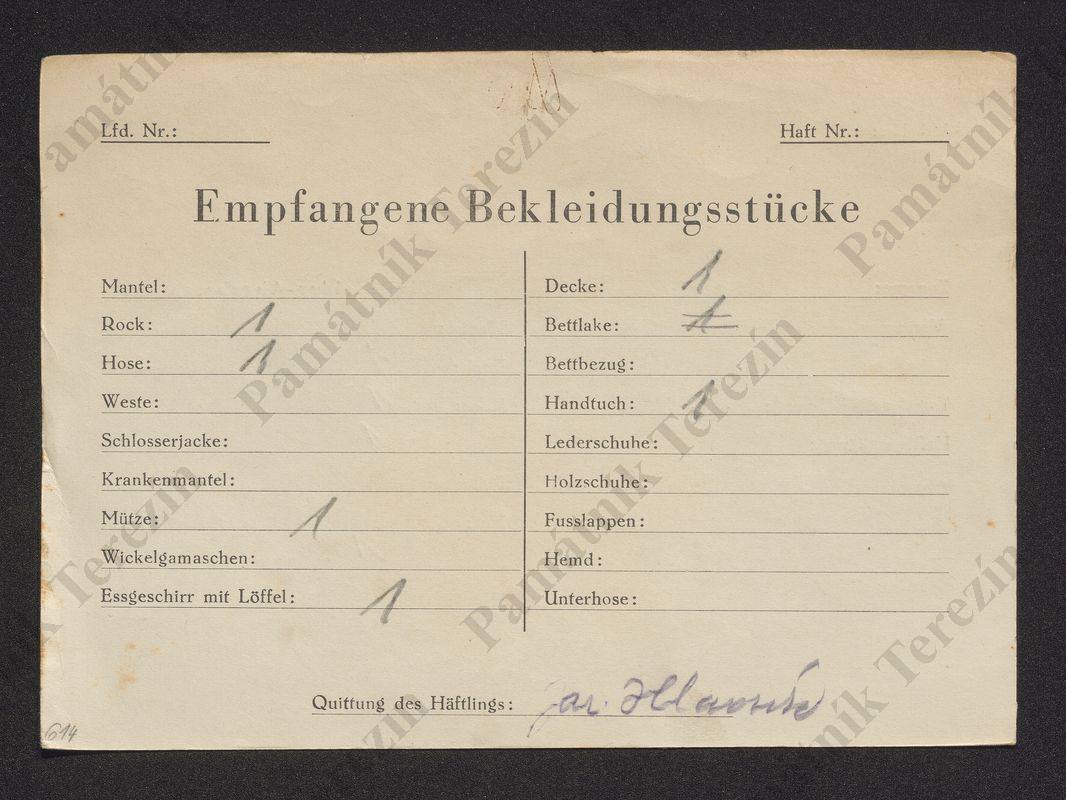 Lfd. Nr.:
Haft Nr.:
Empfangene Bekleidungsstücke
Mantel:
Rock: 1
Hose: 1
Weste:
Schlosserjacke:
Krankenmantel:
Mütze: 1
Wickelgamaschen:
Essgeschirr mit Löffel: 1
Decke: 1
Bettlake: 1
Bettbezug:
Handtuch: 1
Lederschuhe:
Holzschuhe:
Fusslappen:
Hemd:
Unterhose:
Quittung des Häftlings: Jar.
614
Památník Terezín